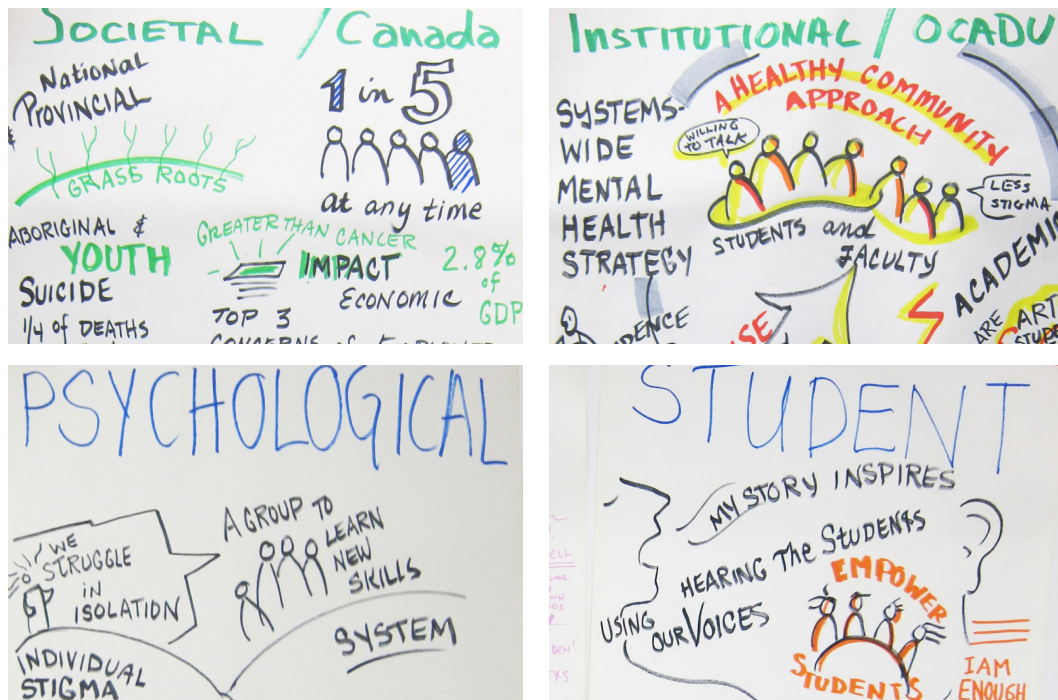 SOCIETAL / Canada
National
PROVINCIAL
&
GRASS ROOTS
1 in 5
at any time
ABORIGINAL &
YOUTH
SUICIDE
1/4 of DEATHS
GREATER THAN CANCER
IMPACT
ECONOMIC
2.8%
of
GDP
TOP 3
INSTITUTIONAL / OCADU
SYSTEMS-
WIDE
MENTAL
HEALTH
STRATEGY
A HEALTHY COMMUNITY
APPROACH
WILLING
TO TALK
LESS
STIGMA
STUDENTS and
FACULTY
ARE
PSYCHOLOGICAL
WE
STRUGGLE
in
ISOLATION
A GROUP TO
LEARN
NEW
SKILLS
SYSTEM
INDIVIDUAL
STIGMA
STUDENT
MY STORY INSPIRES
HEARING THE STUDENTS
USING OUR VOICES
EMPOWER
STUDENTS
I AM
ENOUGH